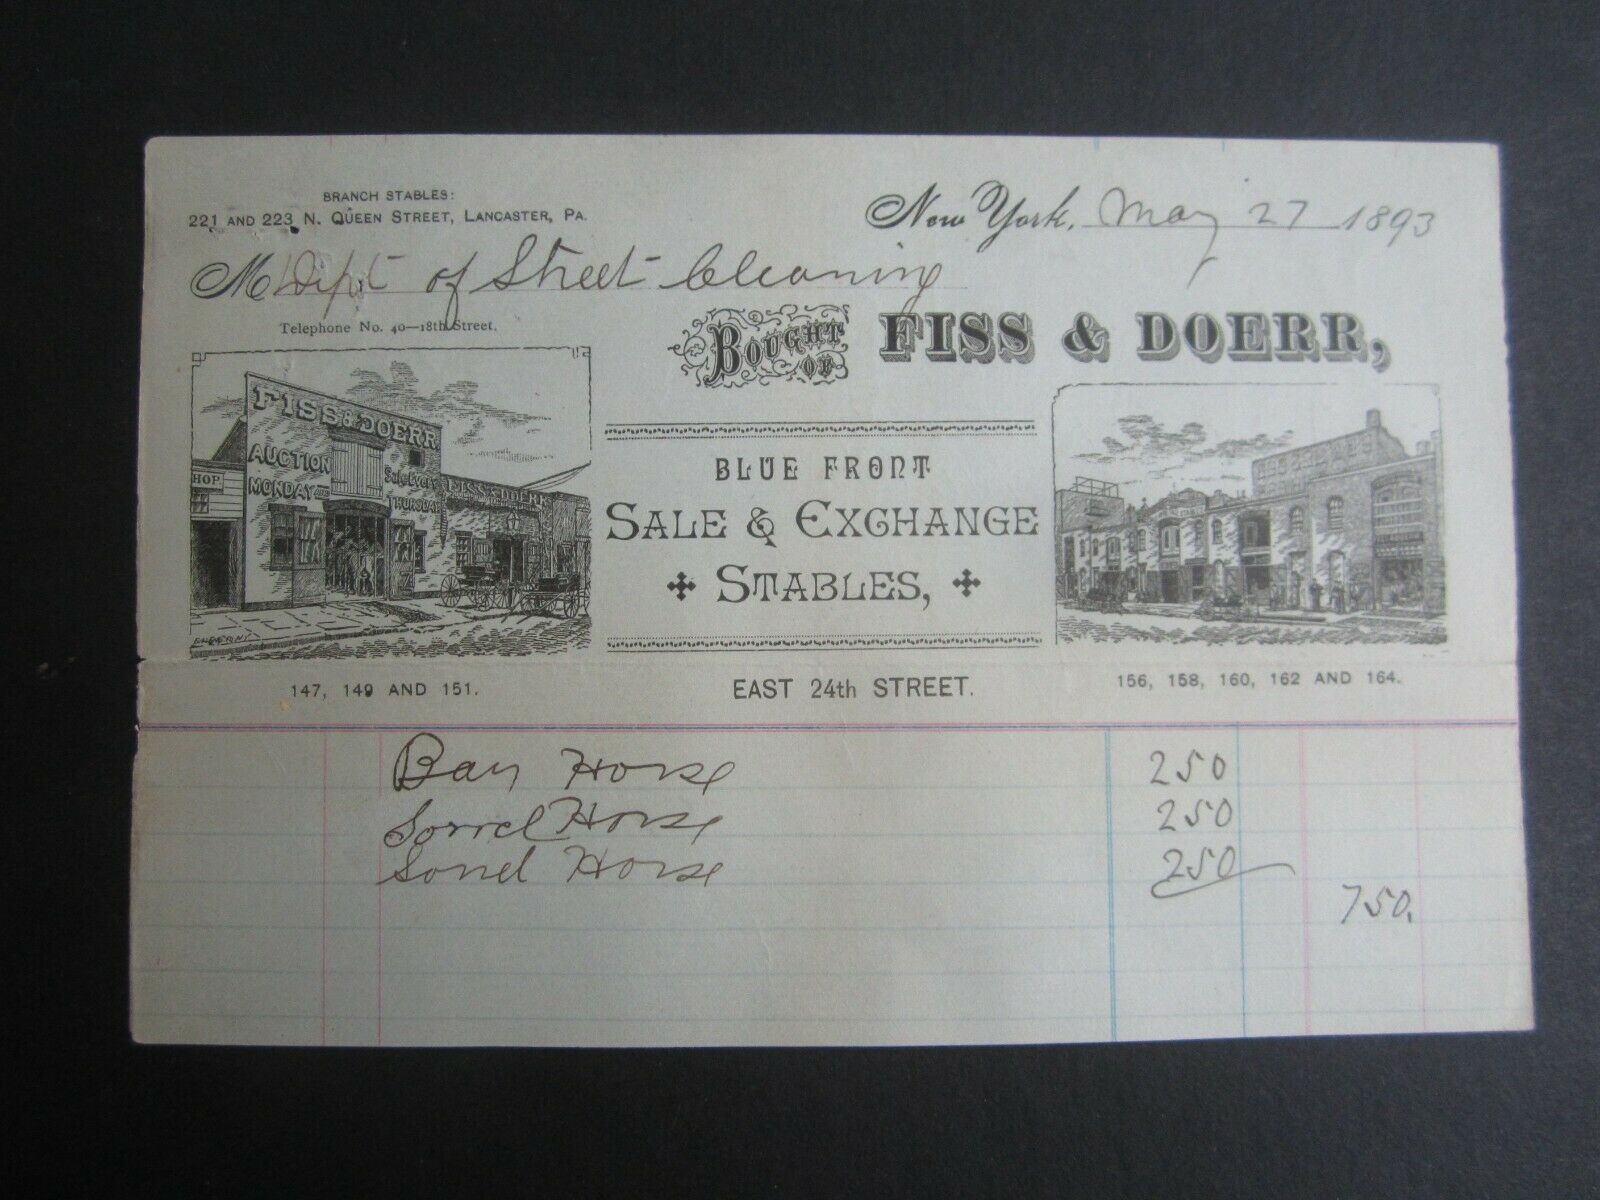 BRANCH STABLES:
221 AND 223 N. QUEEN STREET, LANCASTER, PA.
New York, May 27 1893
M Dept of Street Cleaning
Telephone No. 40—18th Street.
BOUGHT OF FISS & DOERR,
FISS & DOERR
AUCTION
MONDAY AND
Sale Every
THURSDAY
HOP.
FISS & DOERR
BLUE FRONT
SALE & EXCHANGE
STABLES,
147, 149 AND 151.
EAST 24th STREET.
156, 158, 160, 162 AND 164.
Bay Horse 250
Sorrel Horse 250
Sorrel Horse 250
750.